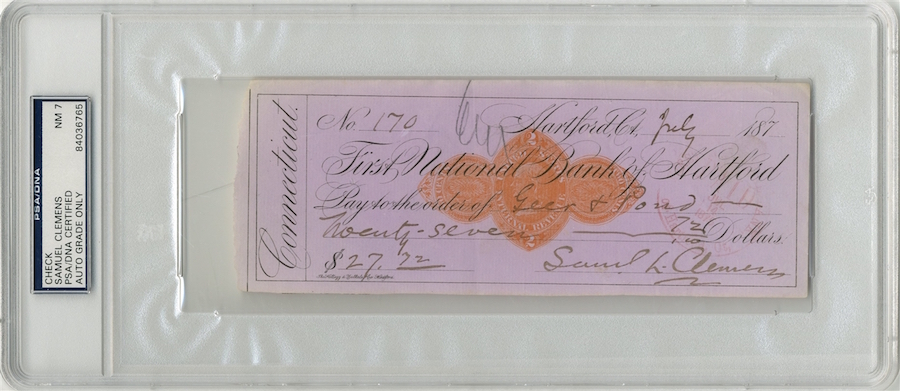 PSA/DNA
CHECK
SAMUEL CLEMENS
PSA/DNA CERTIFIED
AUTO GRADE ONLY
NM 7
84036765
Connecticut.
No. 170 Hartford, Ct, July 187
First National Bank of Hartford
Pay to the order of Geer & Pond
Twenty-seven 72/100 Dollars
$27.72 Saml. L. Clemens